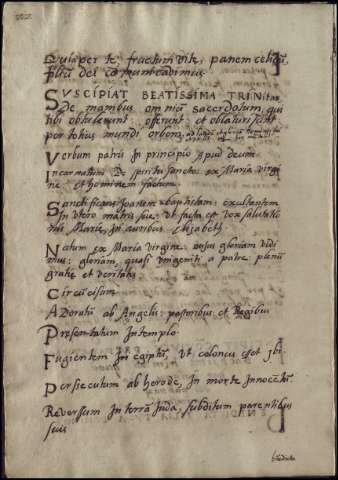 Quia per te, fructum vite, panem celicũ,
filiũ dei comunicavimus.
SVSCIPIAT BEATISSIMA TRINitas
De manibus omniũ sacerdotum, qui
tibi obtulerunt, offerunt et oblaturi sunt
per totius mundi orbem
Verbum patris In principio apud deum.
Incarnatum De spiritu sancto. ex Maria virgi
ne et hominem factum.
Sanctificans Joanem baptistam: exultantem
In utero matris sue: ut facta est vox salutatio
nis Marie, In auribus elisabeth
Natum ex Maria virgine. cuius gloriam vidi
mus: gloriam, quasi unigeniti a patre: plenũ
gratie et veritatis
Circũcisum.
ADoratũ ab Angelis: pastoribus et Regibus
Presentatum In templo
Fugientem In egiptũ, Ut colonus esset ibi.
Persecutum ab herode, In morte Innocentũ
Reversum In terrã Juda, subditum parentibus
suis